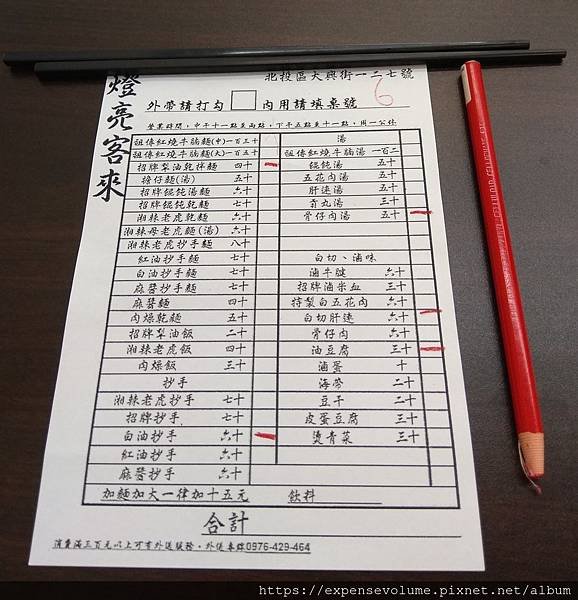 燈亮客來
北投區大興街一二七號
外帶請打勾 內用請填桌號 6
營業時間:中午十一點至兩點,下午五點至十一點,周一公休
祖傳紅燒牛腩麵(中)一百三十
祖傳紅燒牛腩麵(大)一百五十
招牌梨油乾拌麵 四十
擔仔麵(湯) 五十
招牌餛飩湯麵 六十
招牌餛飩乾麵 七十
湘辣老虎乾麵 六十
湘辣母老虎麵(湯) 六十
湘辣老虎抄手麵 八十
紅油抄手麵 七十
白油抄手麵 七十
麻醬抄手麵 七十
麻醬麵 四十
肉燥乾麵 五十
招牌梨油飯 二十
湘辣老虎飯 四十
肉燥飯 三十
抄手
湘辣老虎抄手 七十
招牌抄手 七十
白油抄手 六十
紅油抄手 六十
麻醬抄手 六十
湯
祖傳紅燒牛腩湯 一百二
餛飩湯 五十
五花肉湯 五十
肝連湯 五十
貢丸湯 三十
骨仔肉湯 五十
白切、滷味
滷牛腱 六十
招牌滷米血 三十
特製白五花肉 六十
白切肝連 六十
骨仔肉 六十
油豆腐 三十
滷蛋 十
海帶 二十
豆干 二十
皮蛋豆腐 三十
燙青菜 三十
加麵加大一律加十五元 飲料
合計
消費滿三百元以上可有外送服務。外送專線0976-429-464
https://expensevolume.pixnet.net/album